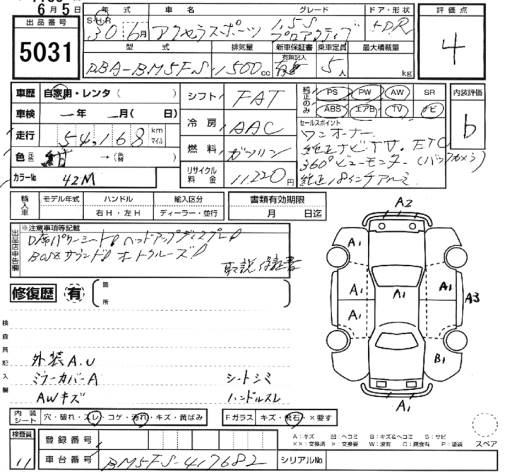 6月5日
出品番号 5031
年式 車名 グレード ドア・形状 評価点
S・H・R 30 6月 アクセラスポーツ 1.5S プロアクティブ 5DR 4
型式 排気量 新車保証書 乗車定員 最大積載量
有無記入
DBA-BM5FS 1500cc 5人 kg
車歴 自家用・レンタ( )
車検 ー年 ー月( 日)
走行 54,168 km マイル
色 紺 →( 替)
カラーNo 42M
シフト FAT
冷房 AAC
燃料 ガソリン
リサイクル料金 11220円
純正のみ PS PW AW SR
ABS エアB TV ナビ
内装評価 b
セールスポイント
ワンオーナー
純正ナビTV. ETC
360°ビューモニター(バックカメラ)
純正18インチアルミ
輸入車 モデル年式 ハンドル 輸入区分 書類有効期限
年 右H・左H ディーラー・並行 月 日迄
※注意事項等記載
D席パワーシート ヘッドアップディスプレー
BOSEサウンド オートクルーズ
取説 保証書
修復歴 有
箇所
検査員記入欄
外装A.U
ミラーカバーA
AWキズ
シートシミ
ハンドルスレ
A2
A1 A1
A1 A1 A1 A1 A3
A1 B1
A1
スペア
内装シート 穴・破れ・スレ・コゲ・汚れ・キズ・黄ばみ Fガラス キズ・飛石・×要す
検査員 11
登録番号
車台番号 BM5FS-417682 シリアルNo
A:キズ U:ヘコミ B:キズ&ヘコミ S:サビ
××:交換済 X:交換要 W:波有 C:腐食 P:塗装